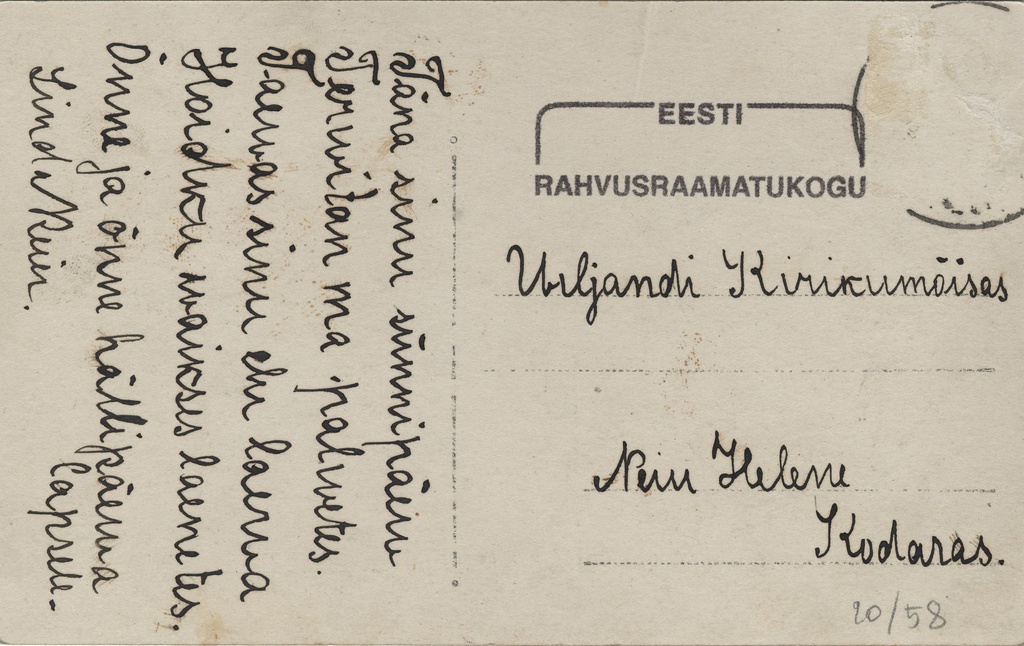 Täna sinu sünnipäew
Terwitan ma palwetes.
Taewas sinu elu laewa
Hoidku waikses laenetes.
Õnne ja õnne hällipäewa
Lapsele.
Lind. Neiu.
EESTI
RAHVUSRAAMATUKOGU
Wiljandi Kirikumõisas
Neiu Helene
Kodaras.
20/58